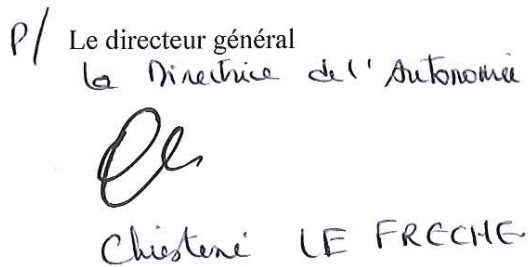 P/ Le directeur général
La Directrice de l'Autonomie
Christine LE FRECHE